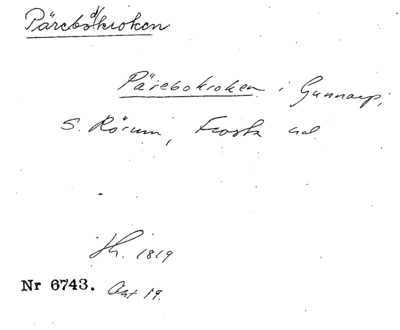 Pärebokroken
Pärebokroken i Gunnarp,
S. Rörum, Frosta hd.
Jh. 1819
Nr 6743. Akt 19.